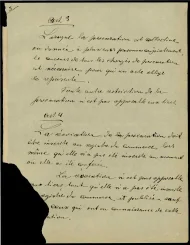 art 3
Lorsque la procuration est collective
ou donnée à plusieurs personnes conjointement
la
est nécessaire, pour qu'un acte oblige
le représenté.
Toute autre restriction de la
procuration n'est pas opposable aux tiers.
art 4
La révocation de la procuration doit
être inscrite au registre du commerce, lors
même qu'elle n'a pas été inscrite au moment
où elle a été
La révocation n'est pas opposable
aux tiers tant qu'elle n'a pas été inscrite
registre du commerce, et publiée, sauf
ceux qui ont eu connaissance de cette